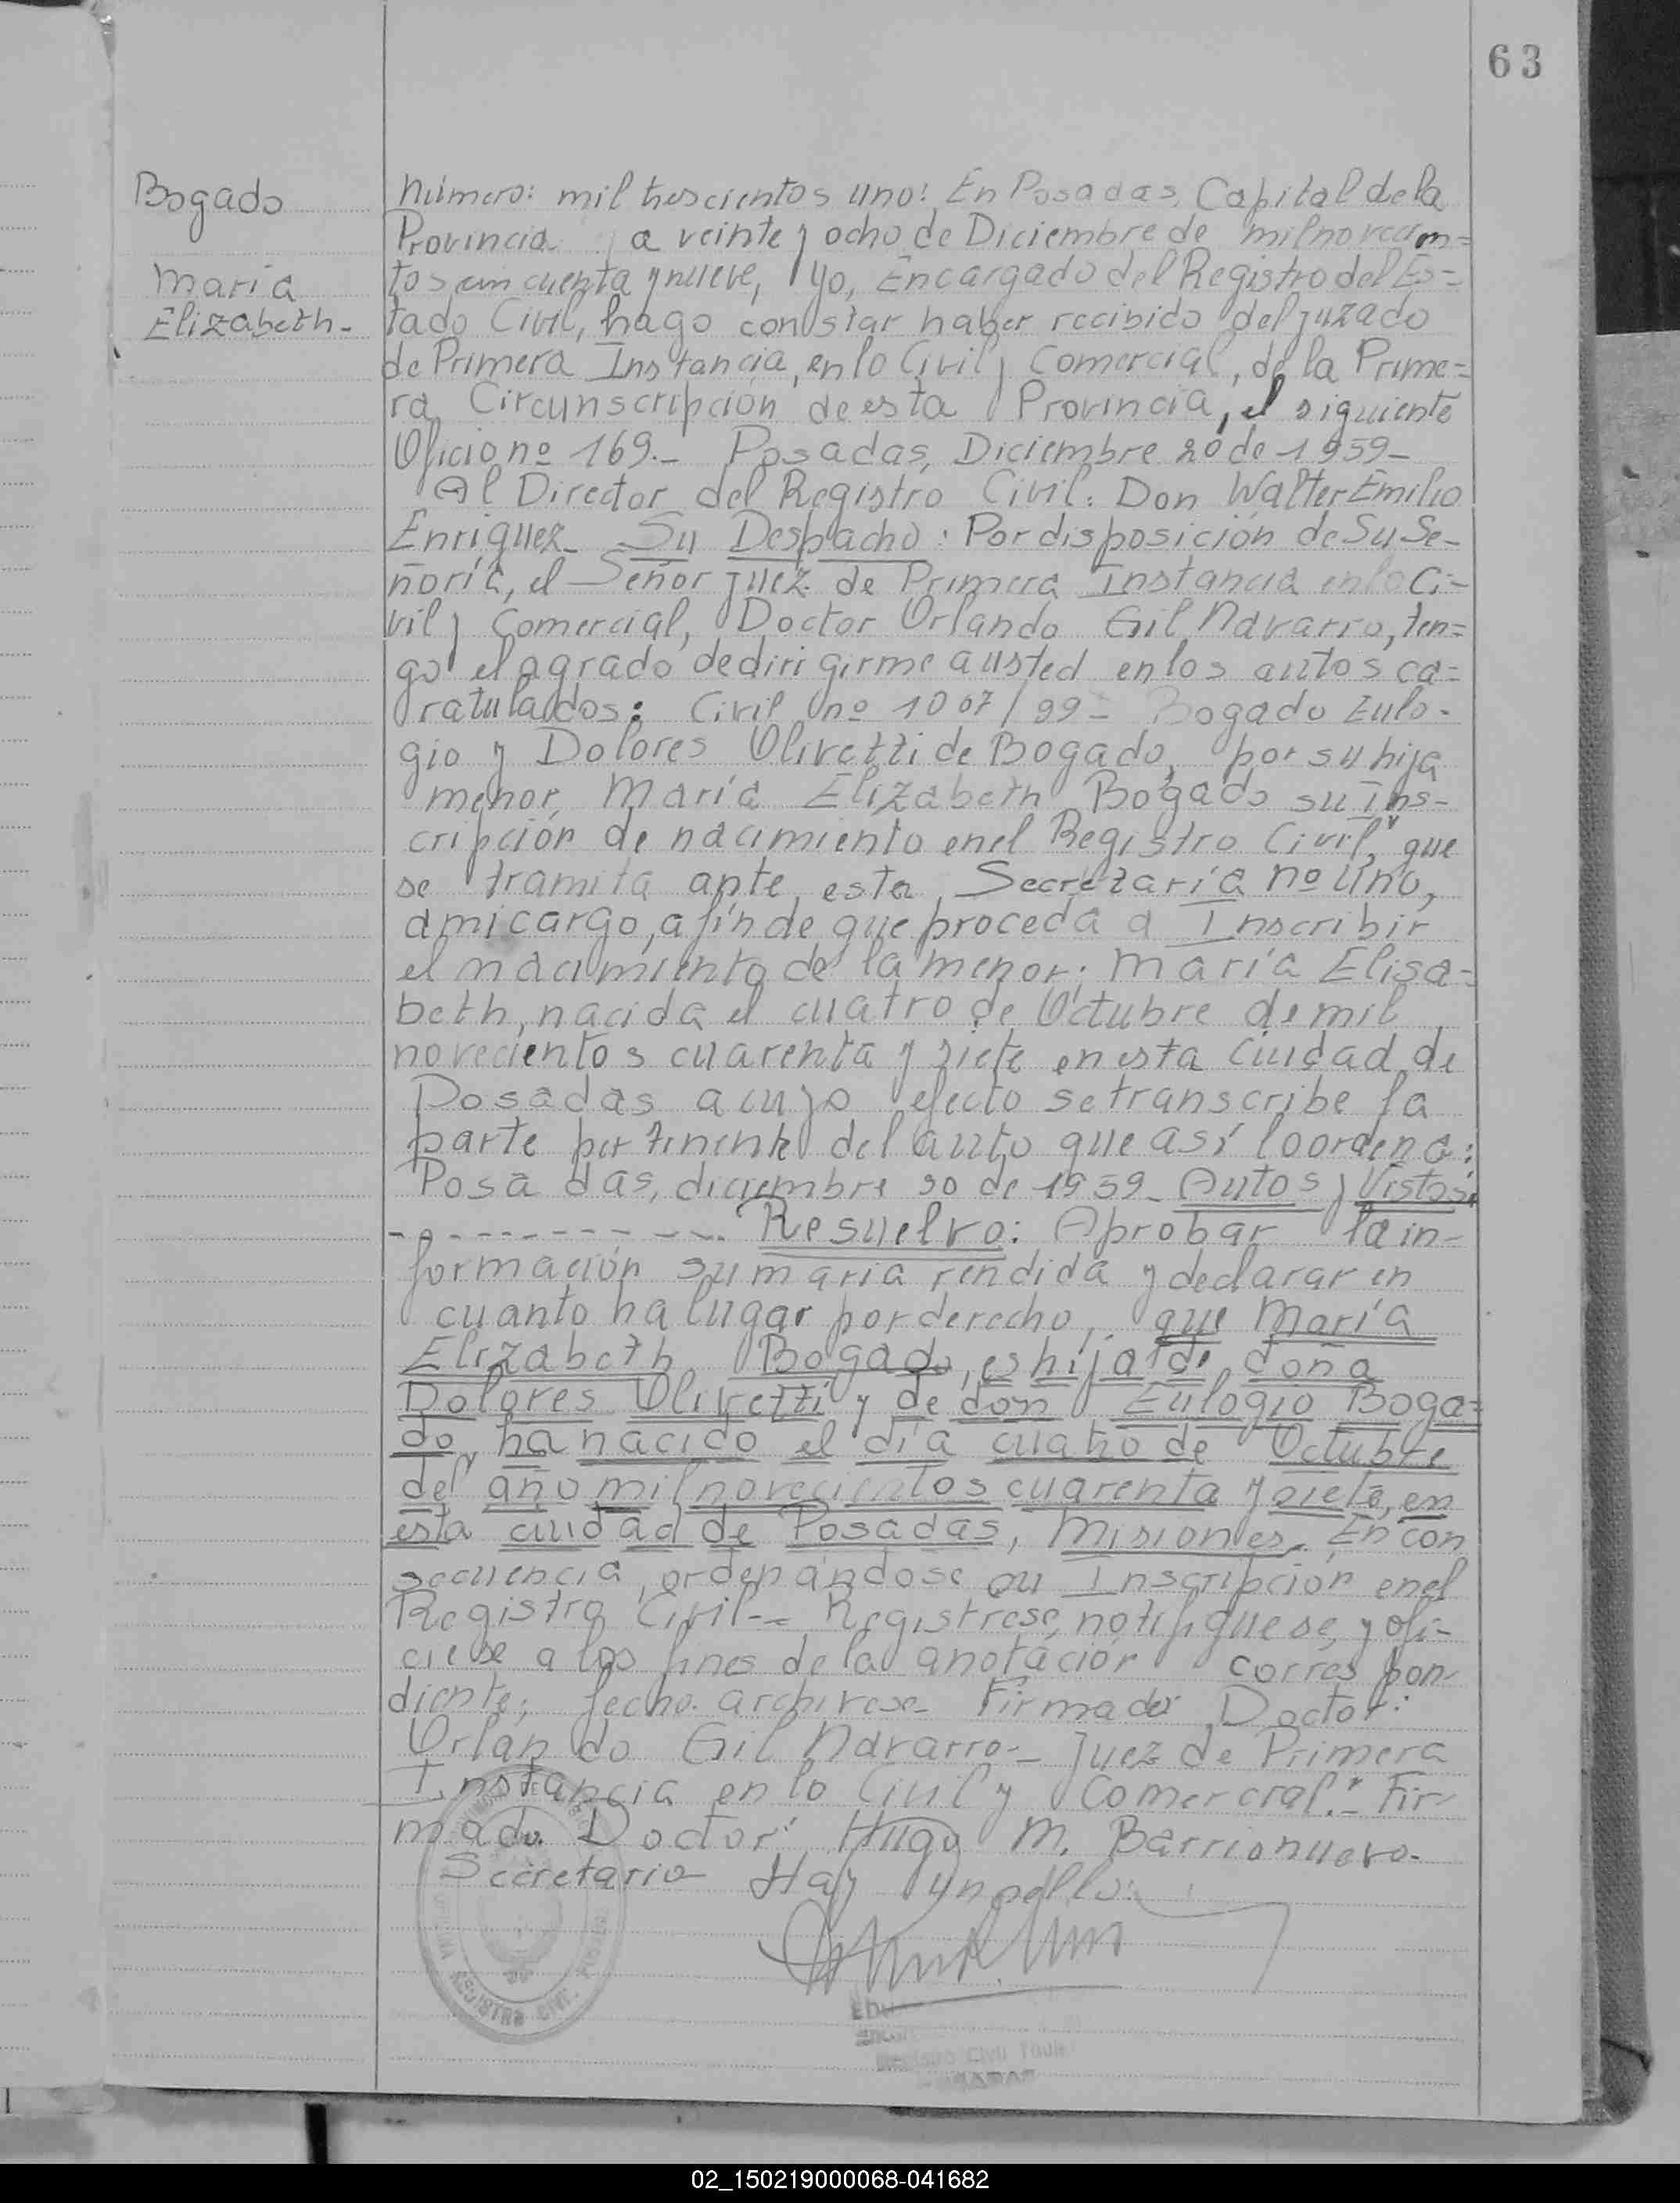 63
Bogado
María
Elizabeth-
Número: mil trescientos uno: En Posadas, Capital de la
Provincia a veinte y ocho de Diciembre de mil novecien=
tos cincuenta y nueve, yo, Encargado del Registro del Es=
tado Civil, hago constar haber recibido del juzado
de Primera Instancia, en lo Civil y Comercial, de la Prime=
ra Circunscripción de esta Provincia, el siguiente
Oficio nº 169.- Posadas, Diciembre 20 de 1959-
Al Director del Registro Civil: Don Walter Emilio
Enriquez- Su Despacho: Por disposición de Su Se-
ñoría, el Señor juez de Primera Instancia en lo Ci-
vil y Comercial, Doctor Orlando Gil Navarro, ten=
go el agrado de dirigirme a usted en los autos ca=
ratulados: Civil nº 1067/99- Bogado Eulo-
gio y Dolores Olivetti de Bogado, por su hija
menor, María Elizabeth Bogado su Ins-
cripción de nacimiento en el Registro Civil", que
se tramita ante esta Secretaría nº Uno,
a mi cargo, a fin de que proceda a Inscribir
el nacimiento de la menor: María Elisa=
beth, nacida el cuatro de Octubre de mil
novecientos cuarenta y siete en esta Ciudad de
Posadas a cuyo efecto se transcribe la
parte pertinente del auto que así lo ordena:
Posadas, diciembre 20 de 1959- Autos y Vistos:
- - - - - - - - - - - Resuelvo: Aprobar la in-
formación sumaria rendida y declarar en
cuanto ha lugar por derecho, que María
Elizabeth Bogado, es hija de doña
Dolores Olivetti y de don Eulogio Boga=
do, ha nacido el día cuatro de Octubre
del año mil novecientos cuarenta y siete, en
esta ciudad de Posadas, Misiones. En con
secuencia, ordenándose su Inscripción en el
Registro Civil-- Regístrese, notifíquese, y ofí-
ciese a los fines de la anotación correspon-
diente; fecho. archívese- Firmado: Doctor:
Orlando Gil Navarro- Juez de Primera
Instancia en lo Civil y Comercial."- Fir-
mado. Doctor: Hugo M. Barrionuevo-
Secretario- Hay un sello:
REGISTRO CIVIL
Registro Civil
02_150219000068-041682